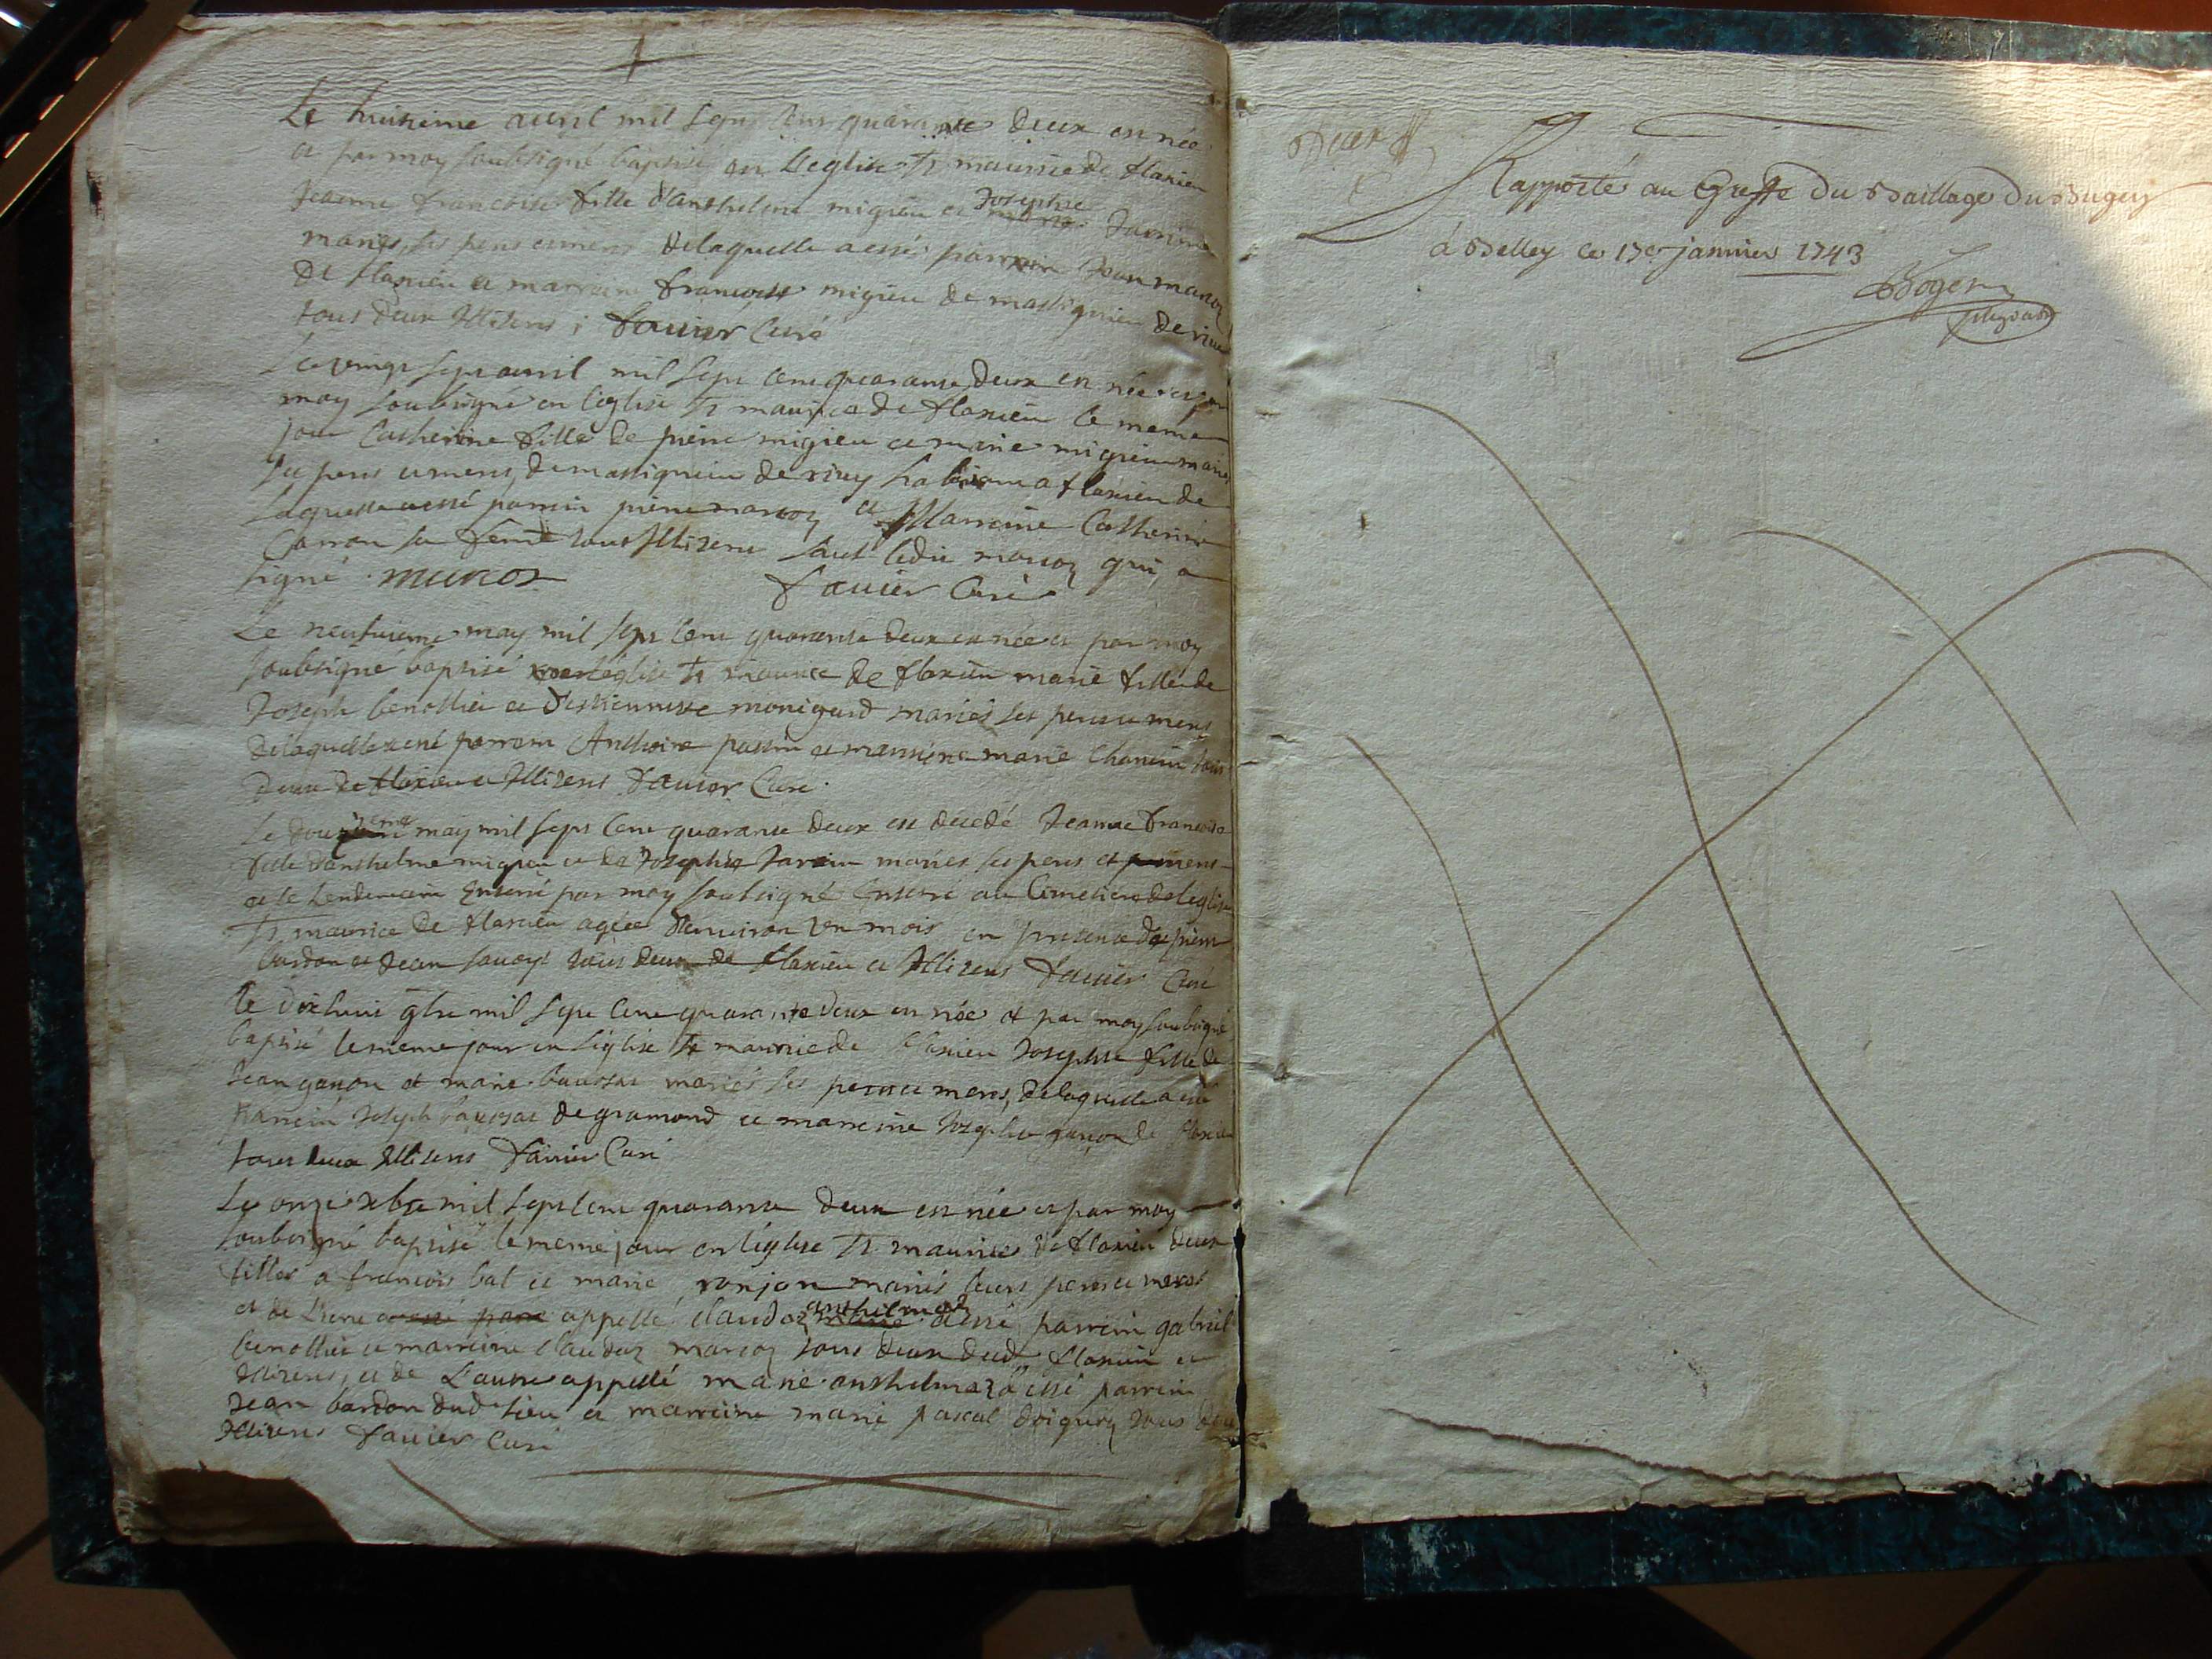 Le huitieme auril mil sept cens quarante deux est née
et par moy soubsigné baptisé en L'eglise St maurice de flaxieu
Jeanne francoise fille d'anthelme migieu et Josephte
mariés ses peres et meres de laquelle a esté parrein Jean marcoz
de flaxieu et marreine francoise migieu de massignieu de rives
tous deux illiterés ; favier Curé
Le vingt sept auril mil sept cent quarante deux est née et par
moy soubsigné en l'eglise St maurice de flaxieu le meme
jour Catherine fille de pierre migieu et marie migieu mariés
ses peres et meres, de massignieu de rives habitant a flaxieu de
laquelle a esté parrein pierre marcoz et Marreine Catherine
Carron sa femme tous illiterés sauf ledit marcoz qui a
signé . marcoz favier Curé
Le neufuieme may mil sept cent quarante deux est née et par moy
soubsigné baptisé en l'eglise St maurice de flaxieu marie fille de
Joseph benollier et d'estiennette monigard mariés ses peres et meres
de laquelle a esté parrein Anthoine passin et marreine marie Chanein tous
deux de flaxieu et illiterés favier Curé .
Le douzieme may mil sept cent quarante deux est decedé Jeanne francoise
fille d'anthelme migieu et de Josephte Jarrin mariés ses peres et meres
et le lendemain Enterré par moy soubsigné Enterré au Cimetiere de l'eglise
St maurice de flaxieu agée d'enuiron un mois en presence de pierre
bardon et Jean sauoye tous deux de flaxieu et illiterés favier Curé
Le dix huit 9bre mil sept cent quarante deux est née et par moy soubsigné
baptisé le meme jour en l'eglise St maurice de flaxieu Josephte fille de
Jean ganon et marie baussat mariés ses peres et meres, de laquelle a esté
parrein Joseph baussat de gramond et marreine Josephte ganon de flaxieu
tous deux illiterés favier Curé
Le onze xbre mil sept cent quarante deux est née et par moy
soubsigné baptisé le meme jour en l'eglise St maurice de flaxieu deux
filles a francois bal et marie ronjon mariés leurs peres et meres
et de L'une a esté parr appellé claudaz anthelmaz a esté parrein gabriel
benollier et marreine claudaz marcoz tous deux dud. flaxieu et
illiterés, et de L'autre appellé marie anthelmaz a esté parrein
Jean bardon dud. lieu et marreine marie pascal tous deux
illiterés favier Curé
Rapporté au Greffe du Baillage du Bugey
à Belley le 17e janvier 1743